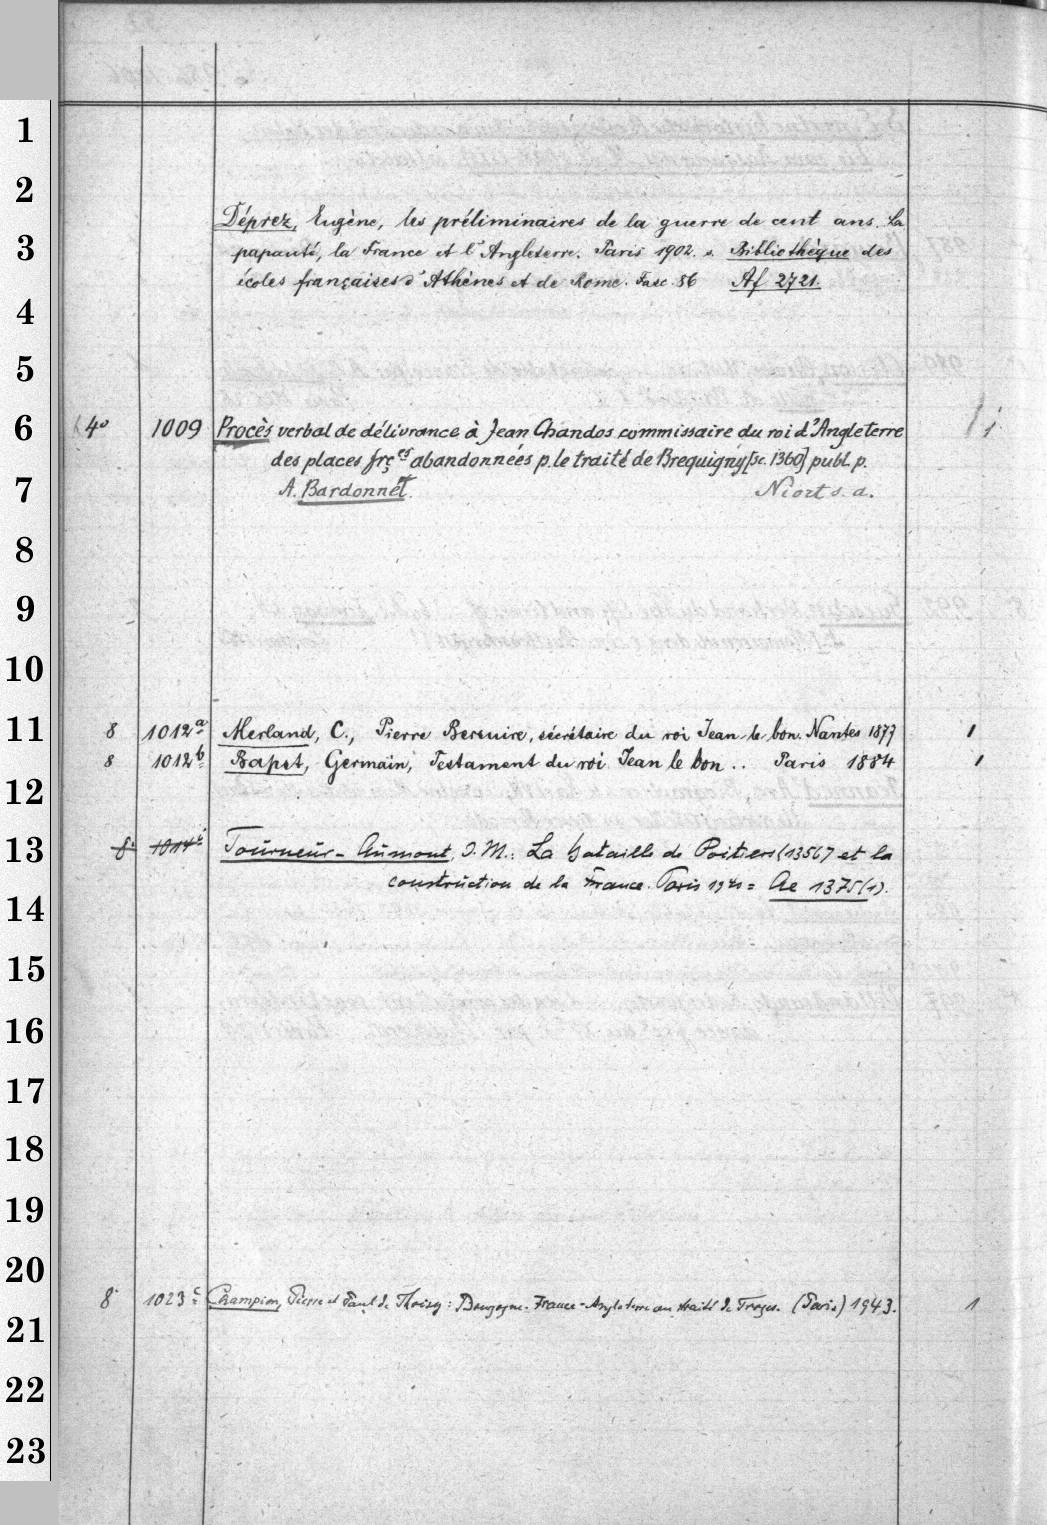 1
2
Déprez, Eugène, les préliminaires de la guerre de cent ans. La
3
papauté, la France et l'Angleterre. Paris 1902. s. Bibliothèque des
écoles françaises d'Athènes et de Rome. Fasc. 86 Af 2721.
4
5
6 4° 1009 Procès verbal de délivrance à Jean Chandos commissaire du roi d'Angleterre
des places frçes abandonnées p. le traité de Brequigny [sc. 1360] publ. p.
7 A. Bardonnet. Niort s. a.
8
9
10
11 8 1012a Merland, C., Pierre Bersuire, sécrétaire du roi Jean le bon. Nantes 1877 1
8 1012b Bapst, Germain, Testament du roi Jean le bon .. Paris 1884 1
12
13 8° Tourneur-Aumont, J. M.: La bataille de Poitiers (1356) et la
construction de la France. Paris = Ae 1375(1).
14
15
16
17
18
19
20
8° 1023c Champion, Pierre et Paul de Thoisy: Bourgogne-France-Angleterre au traité de Troyes. (Paris) 1943. 1
21
22
23